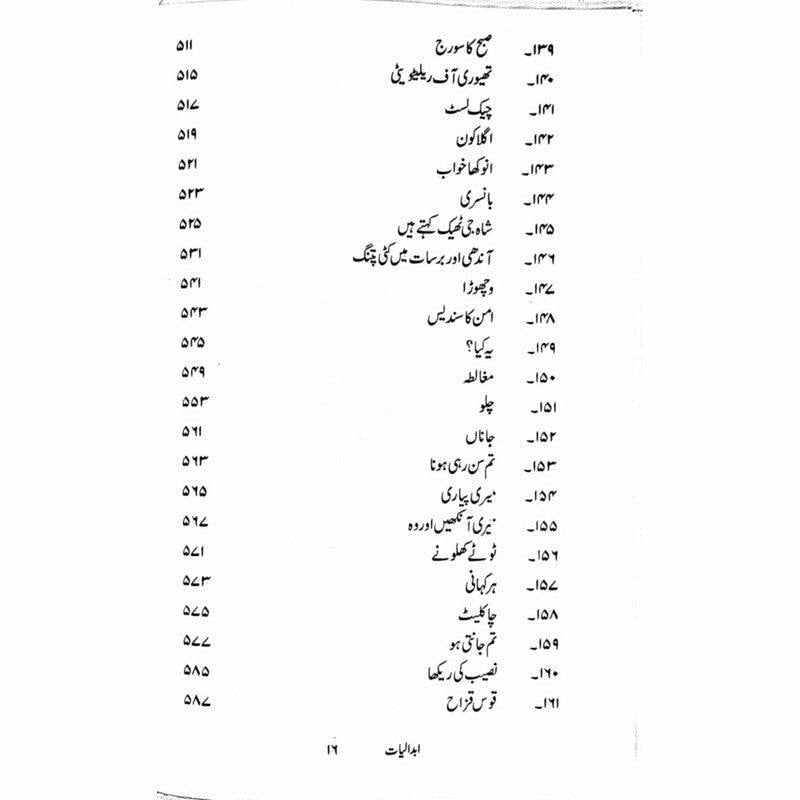 ۱۳۹۔ صبح کا سورج ۵۱۱
۱۴۰۔ تھیوری آف ریلیٹویٹی ۵۱۵
۱۴۱۔ چیک لسٹ ۵۱۷
۱۴۲۔ اگلا کون ۵۱۹
۱۴۳۔ انوکھا خواب ۵۲۱
۱۴۴۔ بانسری ۵۲۳
۱۴۵۔ شاہ جی ٹھیک کہتے ہیں ۵۲۵
۱۴۶۔ آندھی اور برسات میں کٹی پتنگ ۵۳۱
۱۴۷۔ وچھوڑا ۵۴۱
۱۴۸۔ امن کا سندیس ۵۴۳
۱۴۹۔ یہ کیا؟ ۵۴۵
۱۵۰۔ مغالطہ ۵۴۹
۱۵۱۔ چلو ۵۵۳
۱۵۲۔ جاناں ۵۶۱
۱۵۳۔ تم سن رہی ہونا ۵۶۳
۱۵۴۔ میری پیاری ۵۶۵
۱۵۵۔ تیری آنکھیں اور وہ ۵۶۷
۱۵۶۔ ٹوٹے کھلونے ۵۷۱
۱۵۷۔ ہر کہانی ۵۷۳
۱۵۸۔ چاکلیٹ ۵۷۵
۱۵۹۔ تم جانتی ہو ۵۷۷
۱۶۰۔ نصیب کی ریکھا ۵۸۵
۱۶۱۔ قوس قزاح ۵۸۷
ابدالیات ۱۶